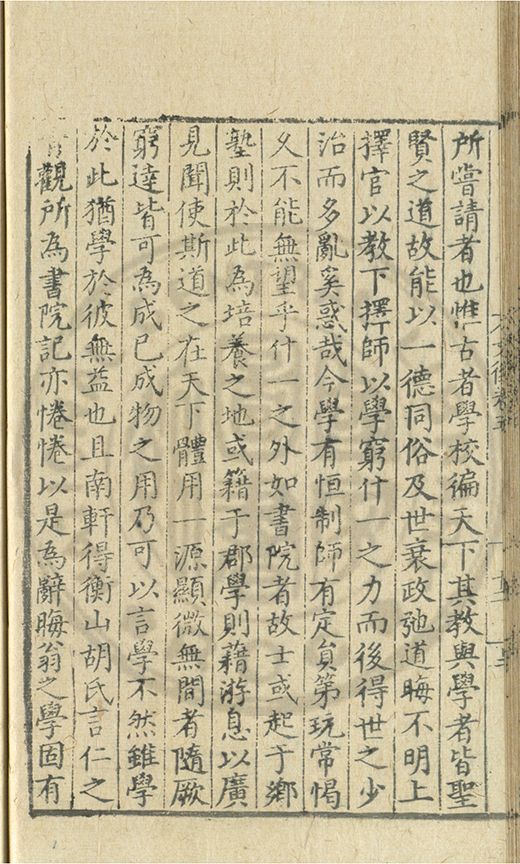 所嘗請者也惟古者學校徧天下其教與學者皆聖
賢之道故能以一德同俗及世衰政弛道晦不明上
擇官以教下擇師以學窮什一之力而後得世之少
治而多亂奚惑哉今學有恒制師有定負第玩常愒
久不能無望乎什一之外如書院者故士或起于鄉
塾則於此為培養之地或籍于郡學則藉游息以廣
見聞使斯道之在天下體用一源顯微無間者隨厥
窮達皆可為成已成物之用乃可以言學不然雖學
於此猶學於彼無益也且南軒得衡山胡氏言仁之
觀所為書院記亦惓惓以是為辭晦翁之學固有